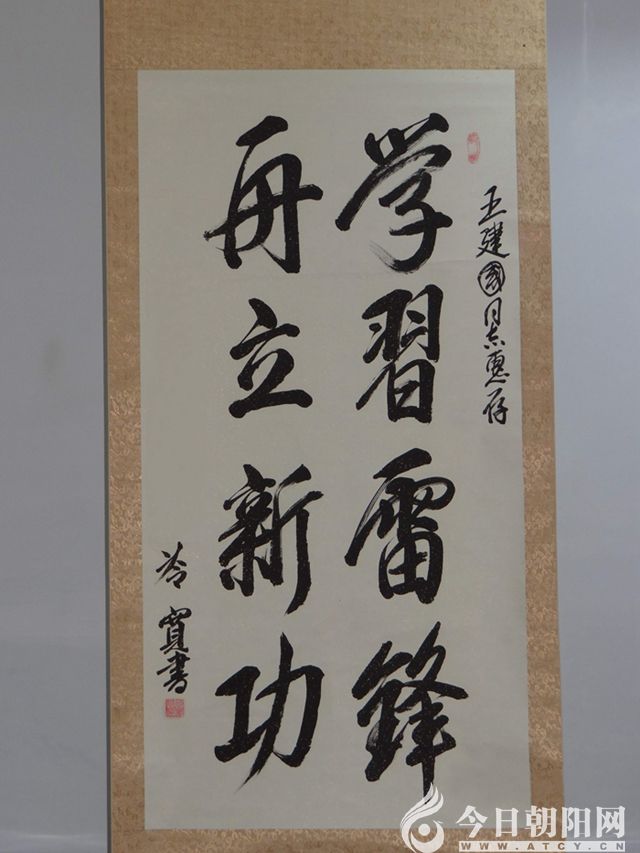 王建國同志惠存
学習雷锋
再立新功
苓寳書
今日朝阳网
WWW.ATCY.CN